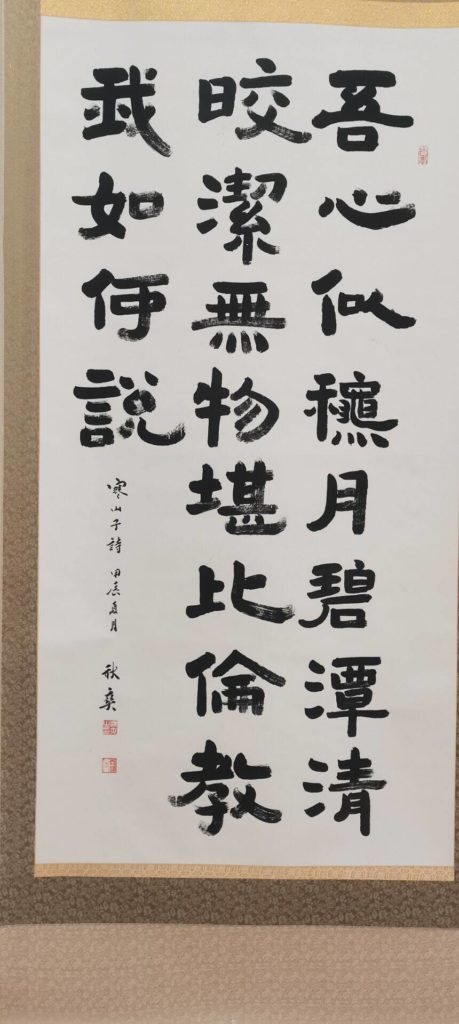 吾心似龝月碧潭清
晈潔無物堪比倫教
我如何說
寒山子詩 甲辰夏月 秋爽